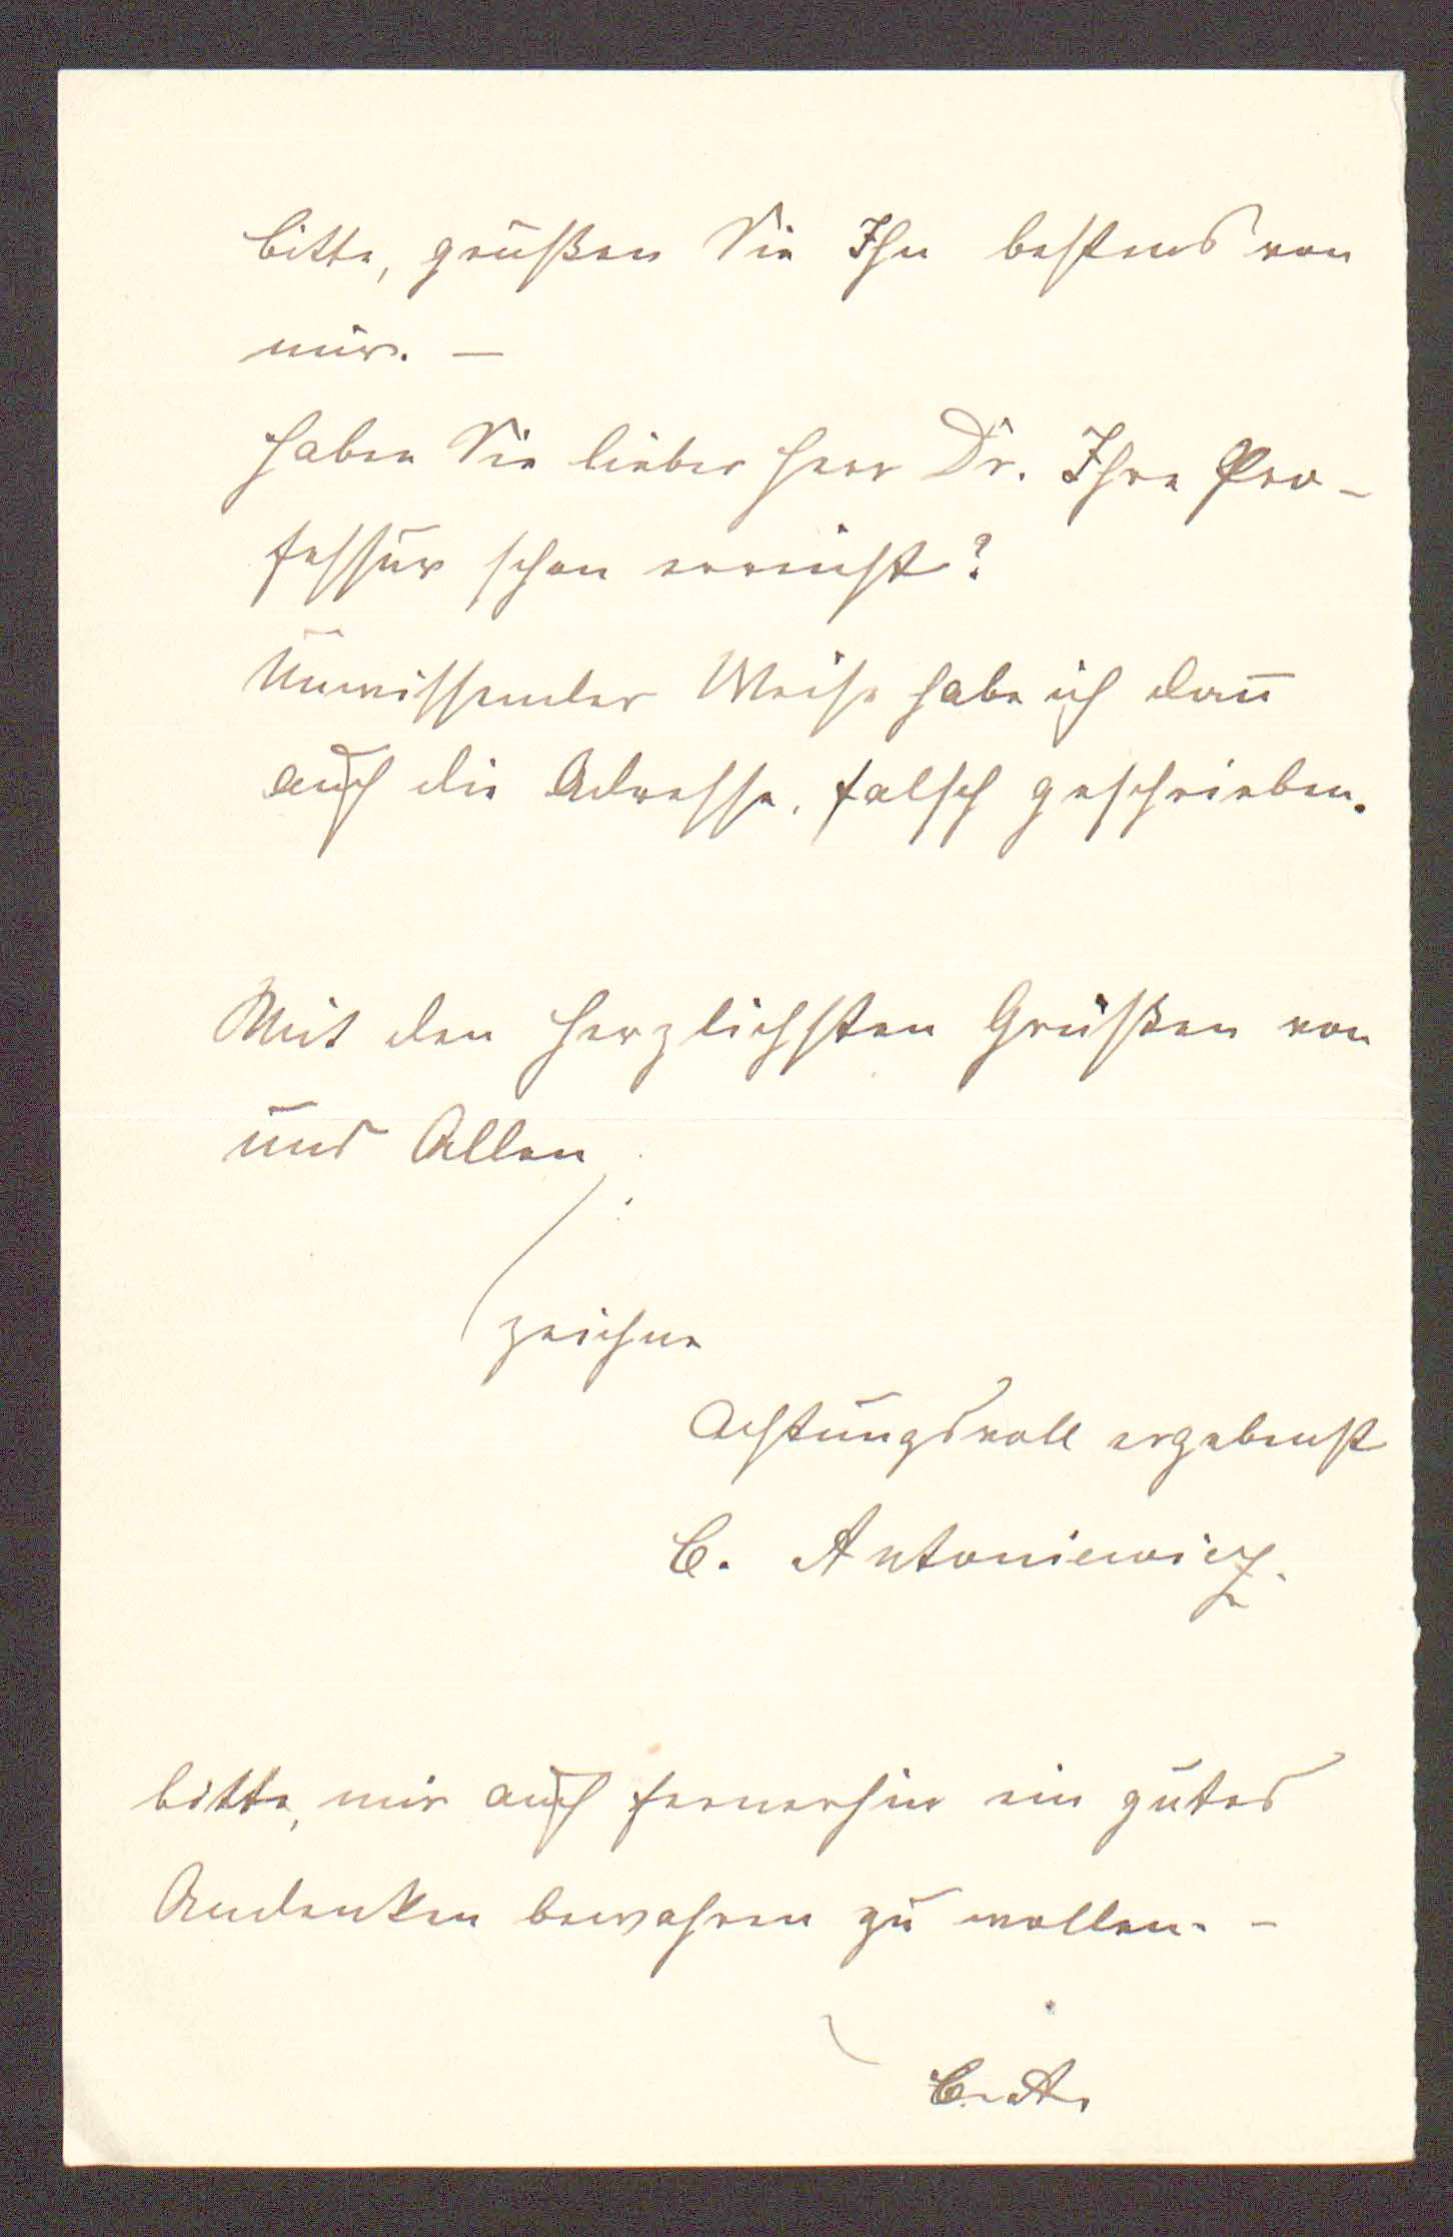 bitte, grüßen Sie Ihn bestens von
mir. —
Haben Sie lieber Herr Dr. Ihre Pro-
fessur schon erreicht?
Unwissender Weise habe ich dan̄
auch die Adresse, falsch geschrieben.
Mit den herzlichsten Grüßen von
uns Allen
zeichne
Achtungsvoll ergebenst
C. Antoniewicz.
bitte, mir auch fernerhin ein gutes
Andenken bewahren zu wollen. –
C. A.